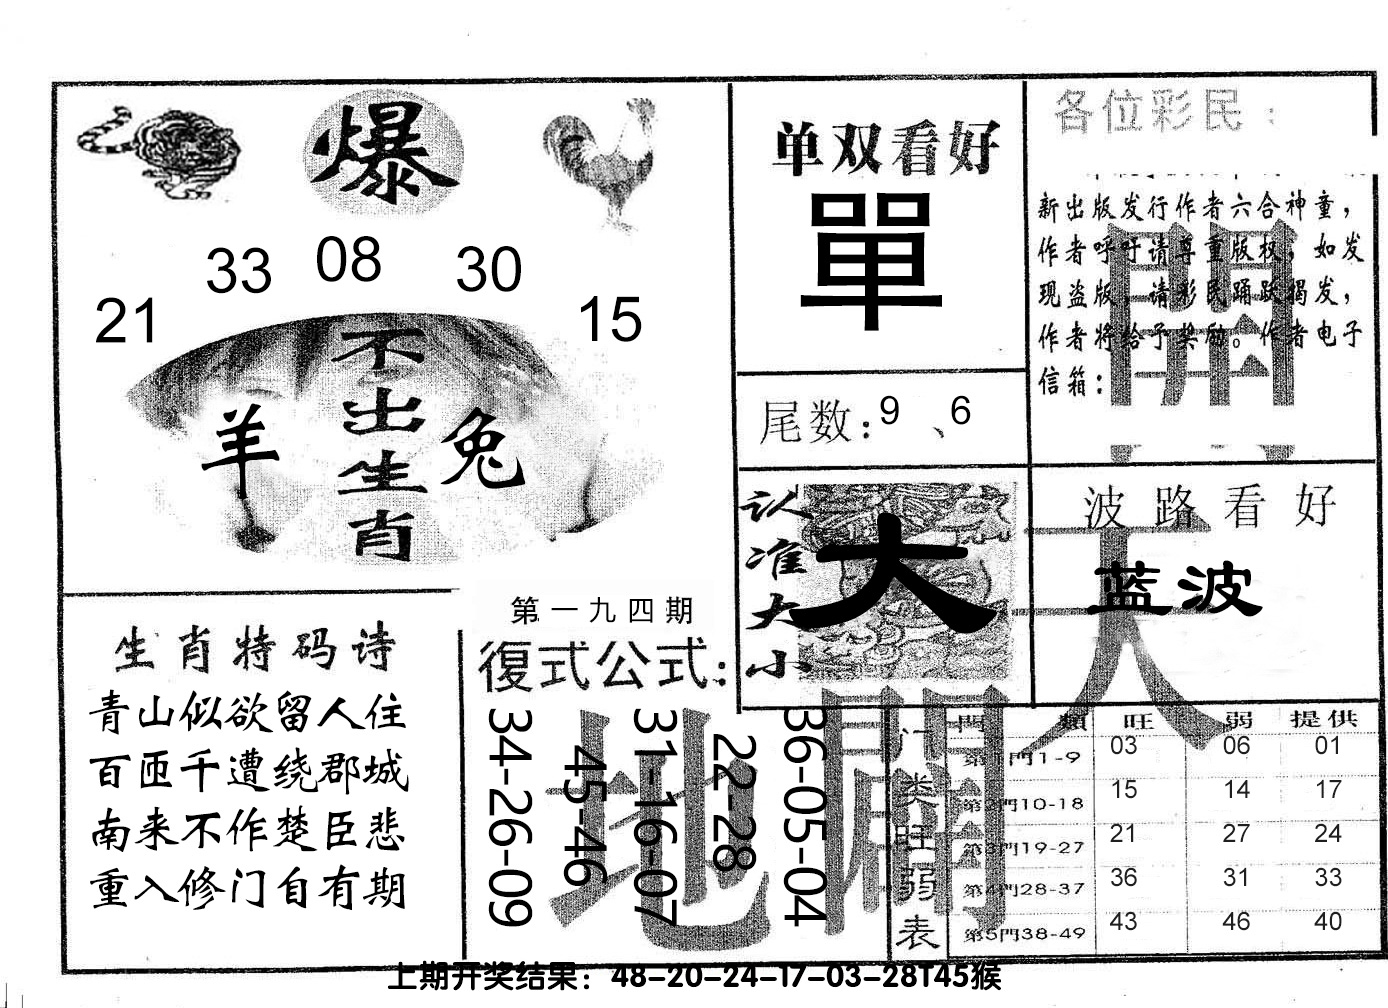 爆
21
33
08
30
15
不出生肖
羊
兔
单双看好
單
尾数:9、6
认准大小
大
各位彩民:
新出版发行作者六合神童,
作者呼吁请尊重版权,如发
现盗版,请彩民踊跃揭发,
作者将给予奖励。作者电子
信箱:
開
波路看好
蓝波
天
生肖特码诗
青山似欲留人住
百匝千遭绕郡城
南来不作楚臣悲
重入修门自有期
第一九四期
復式公式:
34-26-09
45-46
31-16-07
22-28
36-05-04
地
闢
门类旺弱表
門類 旺 弱 提供
第1門1-9 03 06 01
第2門10-18 15 14 17
第3門19-27 21 27 24
第4門28-37 36 31 33
第5門38-49 43 46 40
上期开奖结果：48-20-24-17-03-28T45猴